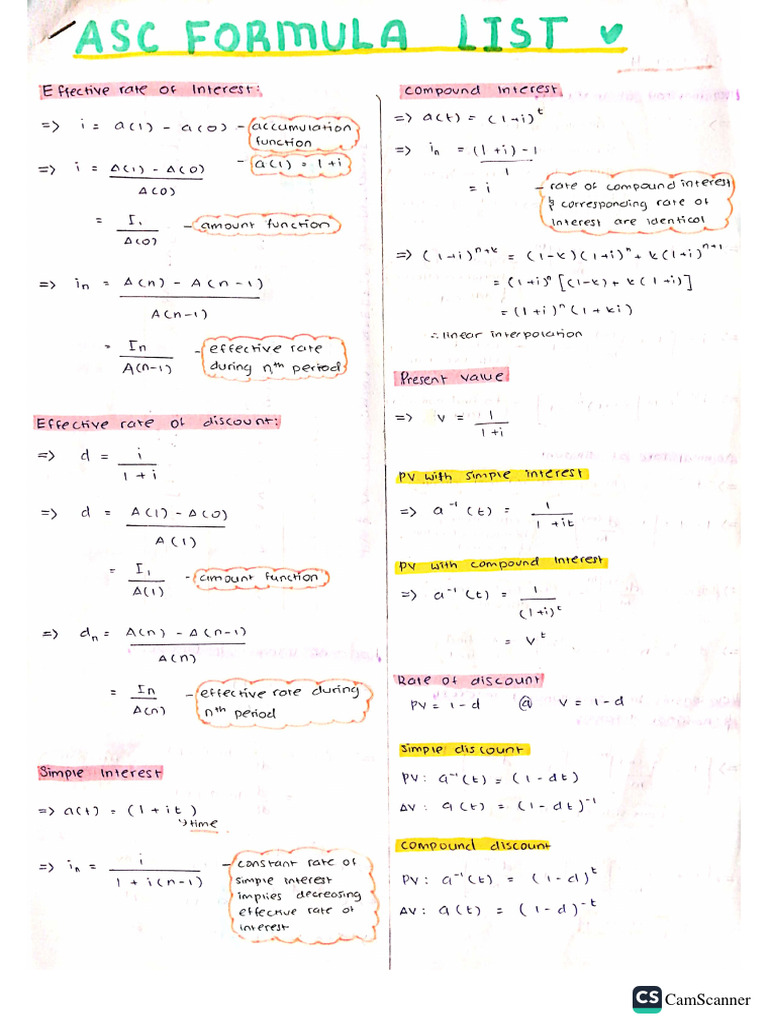 ASC FORMULA LIST
Effective rate of Interest:
=> i = a(1) - a(0) - accumulation function
=> i = A(1) - A(0) / A(0) - a(1) = 1+i
= I₁ / A(0) - amount function
=> iₙ = A(n) - A(n-1) / A(n-1)
= Iₙ / A(n-1) - effective rate during nᵗʰ period
Effective rate of discount:
=> d = i / 1+i
=> d = A(1) - A(0) / A(1)
= I₁ / A(1) - amount function
=> dₙ = A(n) - A(n-1) / A(n)
= Iₙ / A(n) - effective rate during nᵗʰ period
Simple Interest
=> a(t) = (1+it)
↳ time
=> iₙ = i / 1 + i(n-1) - constant rate of simple interest implies decreasing effective rate of interest
Compound Interest
=> a(t) = (1+i)ᵗ
=> iₙ = (1+i) - 1 / 1
= i - rate of compound interest & corresponding rate of interest are identical
=> (1+i)ⁿ⁺ᵏ = (1-k)(1+i)ⁿ + k(1+i)ⁿ⁺¹
= (1+i)ⁿ [(1-k) + k(1+i)]
= (1+i)ⁿ (1+ki)
∴ linear interpolation
Present value
=> v = 1 / 1+i
PV with simple interest
=> a⁻¹(t) = 1 / 1+it
PV with compound Interest
=> a⁻¹(t) = 1 / (1+i)ᵗ
= vᵗ
Rate of discount
PV = 1-d @ v = 1-d
Simple discount
PV: a⁻¹(t) = (1-dt)
AV: a(t) = (1-dt)⁻¹
compound discount
PV: a⁻¹(t) = (1-d)ᵗ
AV: a(t) = (1-d)⁻ᵗ
CS CamScanner